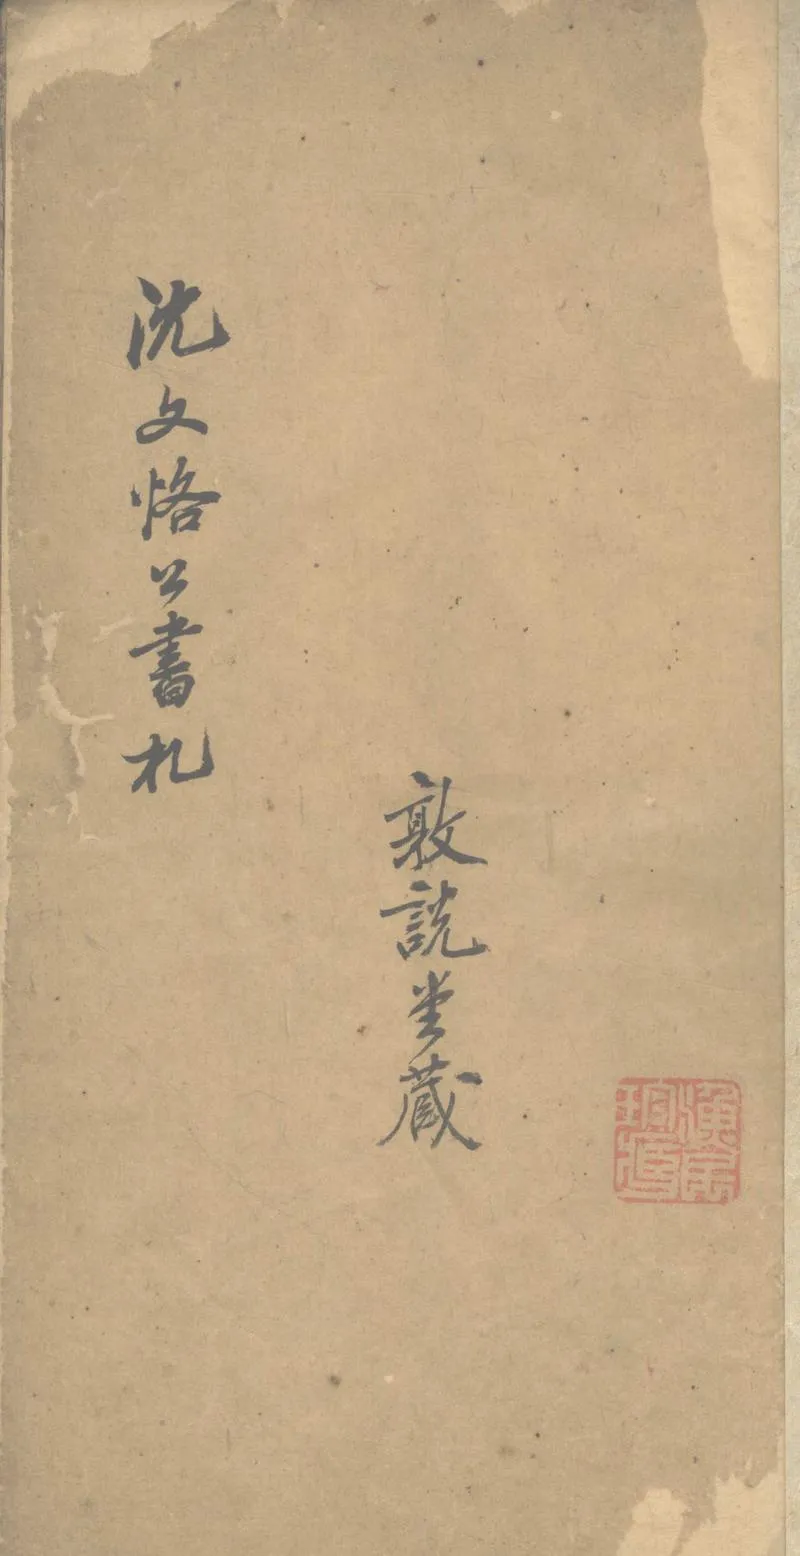 敦説堂藏
沈文恪公書札